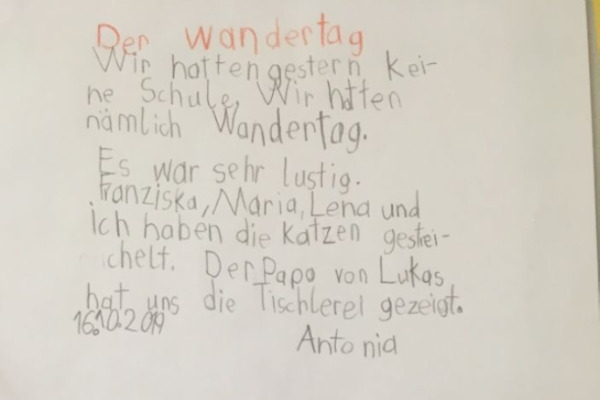 Der Wandertag
Wir hatten gestern kei-
ne Schule, Wir hatten
nämlich Wandertag.
Es war sehr lustig.
Franziska, Maria, Lena und
ich haben die Katzen gestrei-
chelt. Der Papa von Lukas
hat uns die Tischlerei gezeigt.
16.10.2019
Antonia